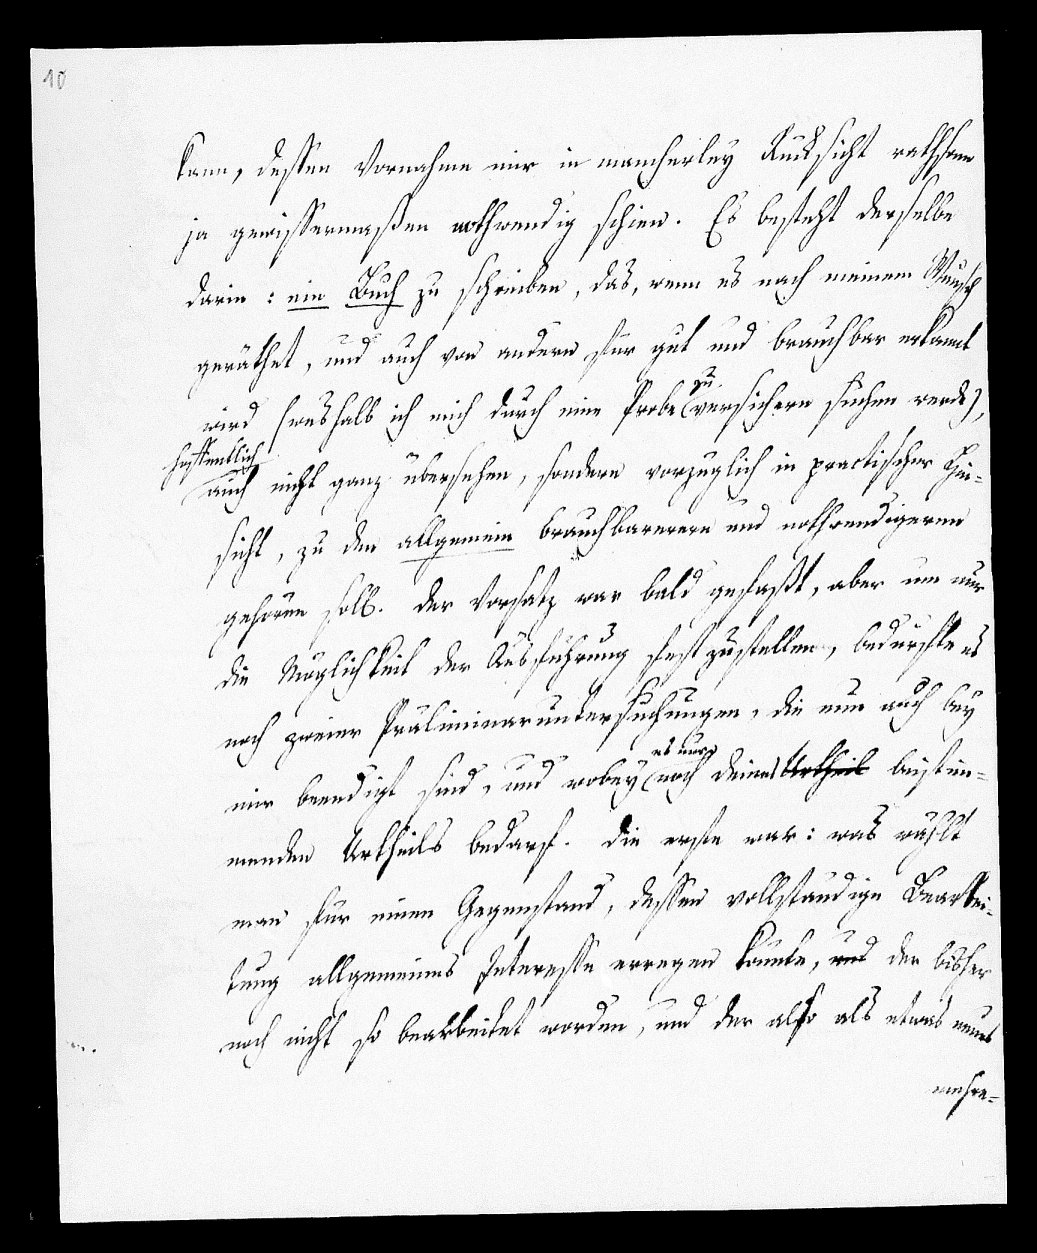 10
kann, dessen Vornahme mir in mancherley Rücksicht rathsam
ja gewissermaßen nothwendig schien. Es besteht derselbe
darin: ein Buch zu schreiben, das, wenn es nach meinem Wunsch
geräthet, und auch von andern für gut und brauchbar erkannt
zu
wird (weshalb ich mich durch eine Probe versichern suchen werde),
hoffentlich
auch nicht ganz übersehen, sondern vorzüglich in practischer Hin-
sicht, zu den allgemein brauchbareren und nothwendigeren
gehören soll. Der Vorsatz war bald gefaßt, aber um nur
die Möglichkeit der Ausführung fest zustellen, bedurfte es
noch zweier Präliminaruntersuchungen, die nun auch bey
es nur
mir beendigt sind, und wobey noch deines Urtheil beistim-
menden Urtheils bedarf. Die erste war: was wählt
man für einen Gegenstand, dessen vollständige Bearbei-
tung allgemeines Interesse erregen könnte, und der bisher
noch nicht so bearbeitet worden, und der also als etwas neues
mehre-